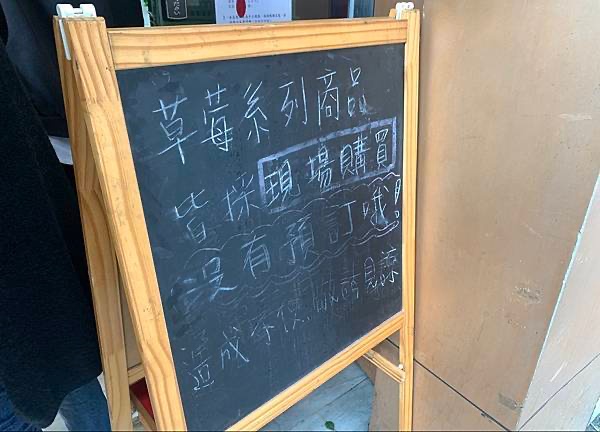 草莓系列商品
皆採現場購買
沒有預訂哦!
造成不便，敬請見諒